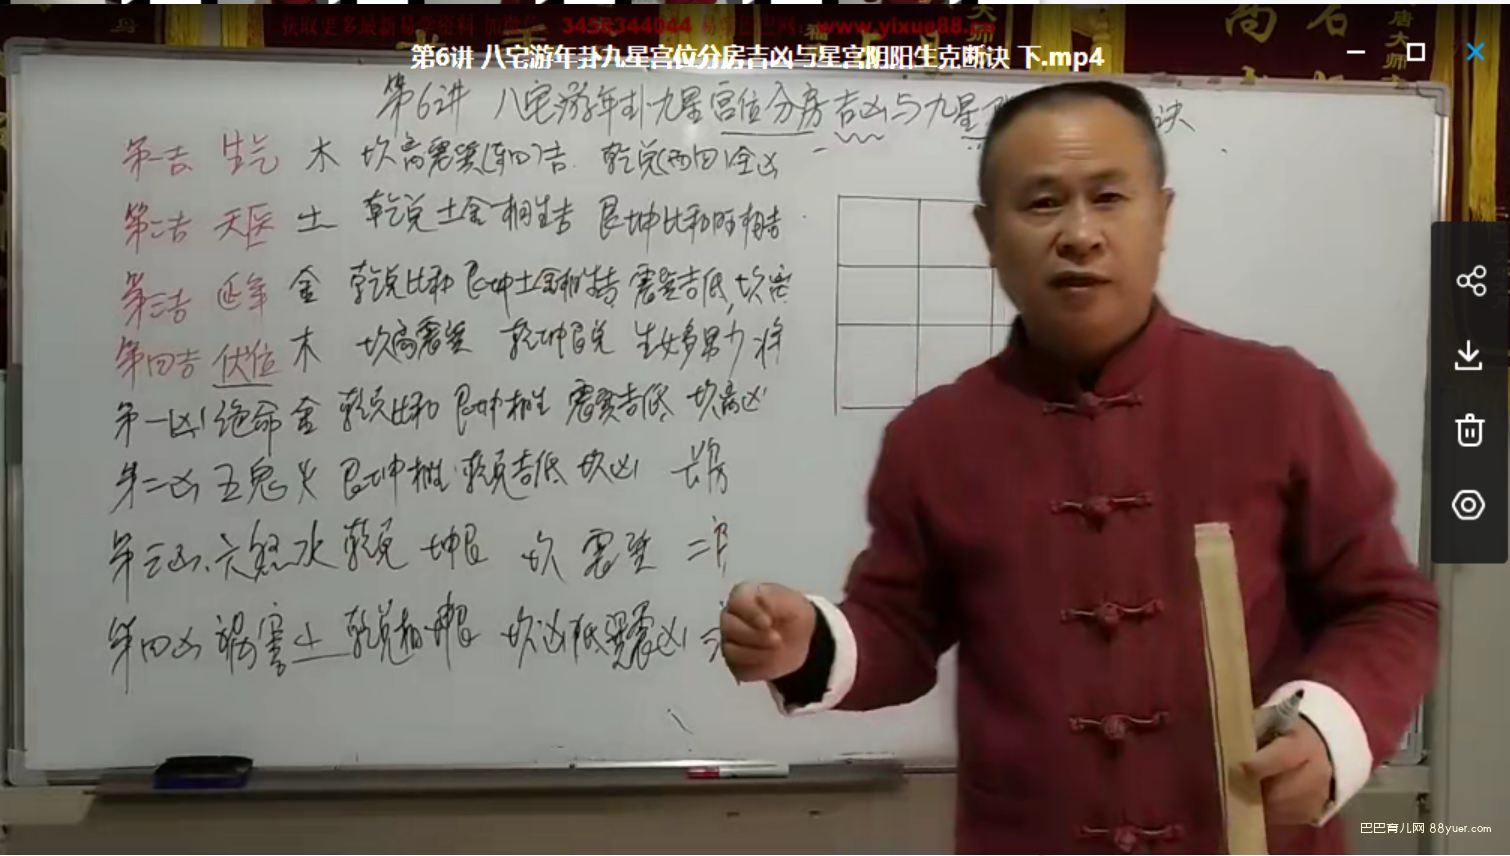 获取更多最新易学资料 加微信 3458344044 易 巴巴网:www.yixue88.cn
唐大师
第6讲 八宅游年卦九星宫位分房吉凶与星宫阴阳生克断诀 下.mp4
第6讲 八宅游年卦九星宫位分房吉凶与九星 诀
第一吉 生气 木 坎离震巽(东四)吉 乾兑(西四)全凶
第二吉 天医 土 乾兑土金相生吉 艮坤比和
第三吉 延年 金 乾兑比和 艮坤土金相生吉 震巽吉低,坎离
第四吉 伏位 木 坎离震巽 乾坤艮兑 生女多男少
第一凶 绝命 金 乾兑比和 艮坤相生 震巽吉低 坎离凶
第二凶 五鬼 火 艮坤相生 乾兑吉低 坎凶 长房
第三凶 六煞 水 乾兑 坤艮 坎 震巽 二房
第四凶 祸害 土 乾兑相 坤艮 坎凶低 巽震凶
巴巴育儿网 88yuer.com